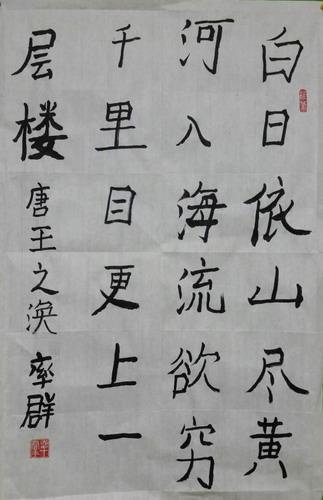 白日依山尽黄
河入海流欲穷
千里目更上一
层楼
唐王之涣 率群